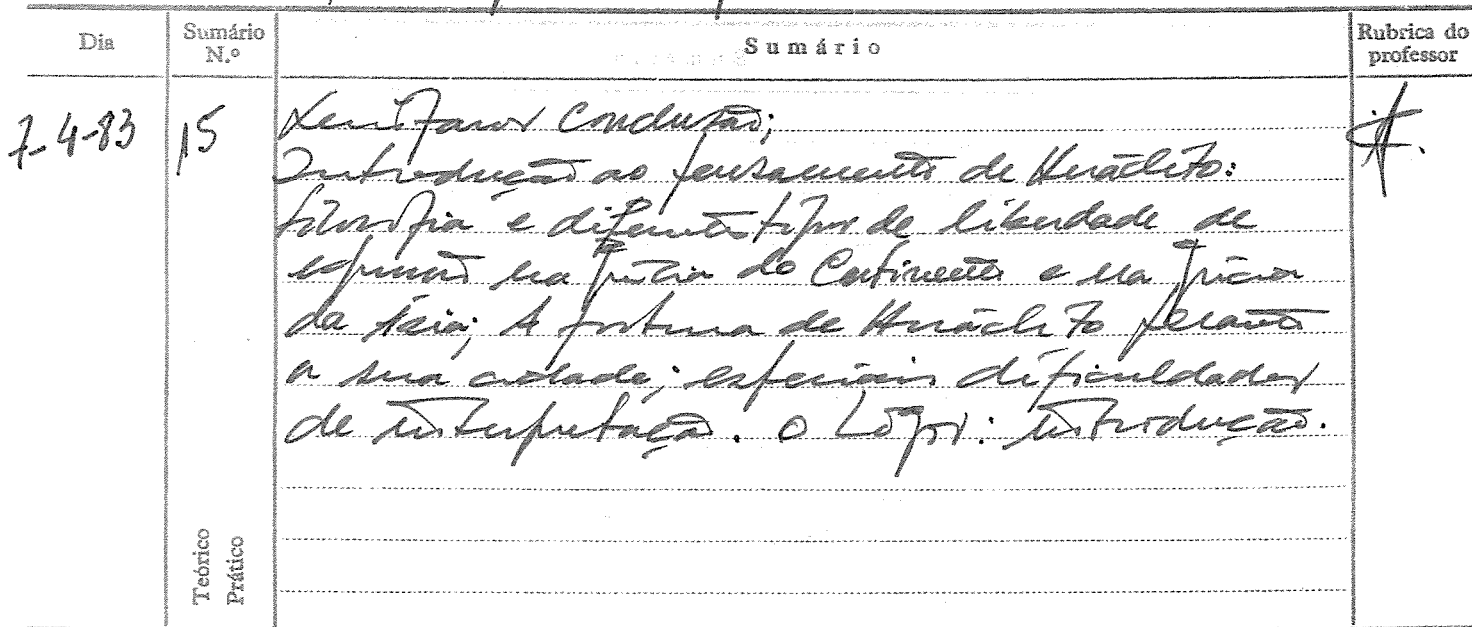 Dia
Sumário N.º
Sumário
Rubrica do professor
7-4-83
15
Xenófanes Conclusão;
Introdução ao pensamento de Heráclito:
filosofia e diferentes tipos de liberdade de
expressão na Grécia do Continente e na Grécia
da Ásia; A fortuna de Heráclito perante
a sua cidade; especiais dificuldades
de interpretação. O Lógos: introdução.
Teórico
Prático